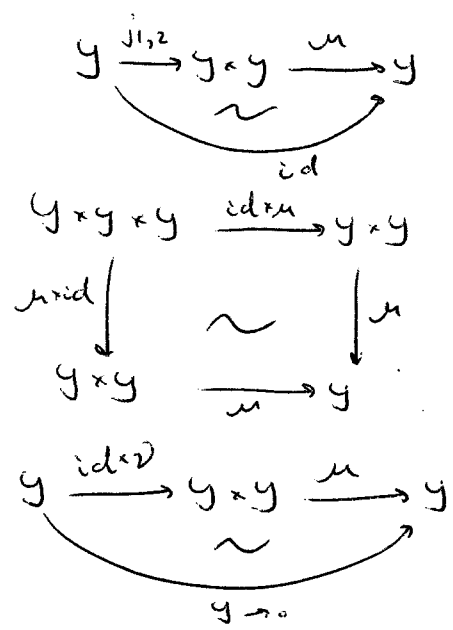 y j₁,₂ → y × y μ → y
~
id
y × y × y id×μ → y × y
μ×id ↓ ~ ↓ μ
y × y → μ y
y id×ν → y × y μ → y
~
y → 0